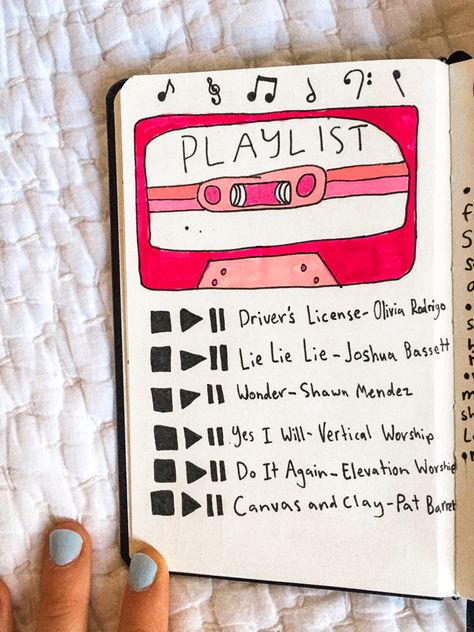 PLAYLIST
Driver's License-Olivia Rodrigo
Lie Lie Lie-Joshua Bassett
Wonder-Shawn Mendez
Yes I Will-Vertical Worship
Do It Again-Elevation Worship
Canvas and Clay-Pat Barret